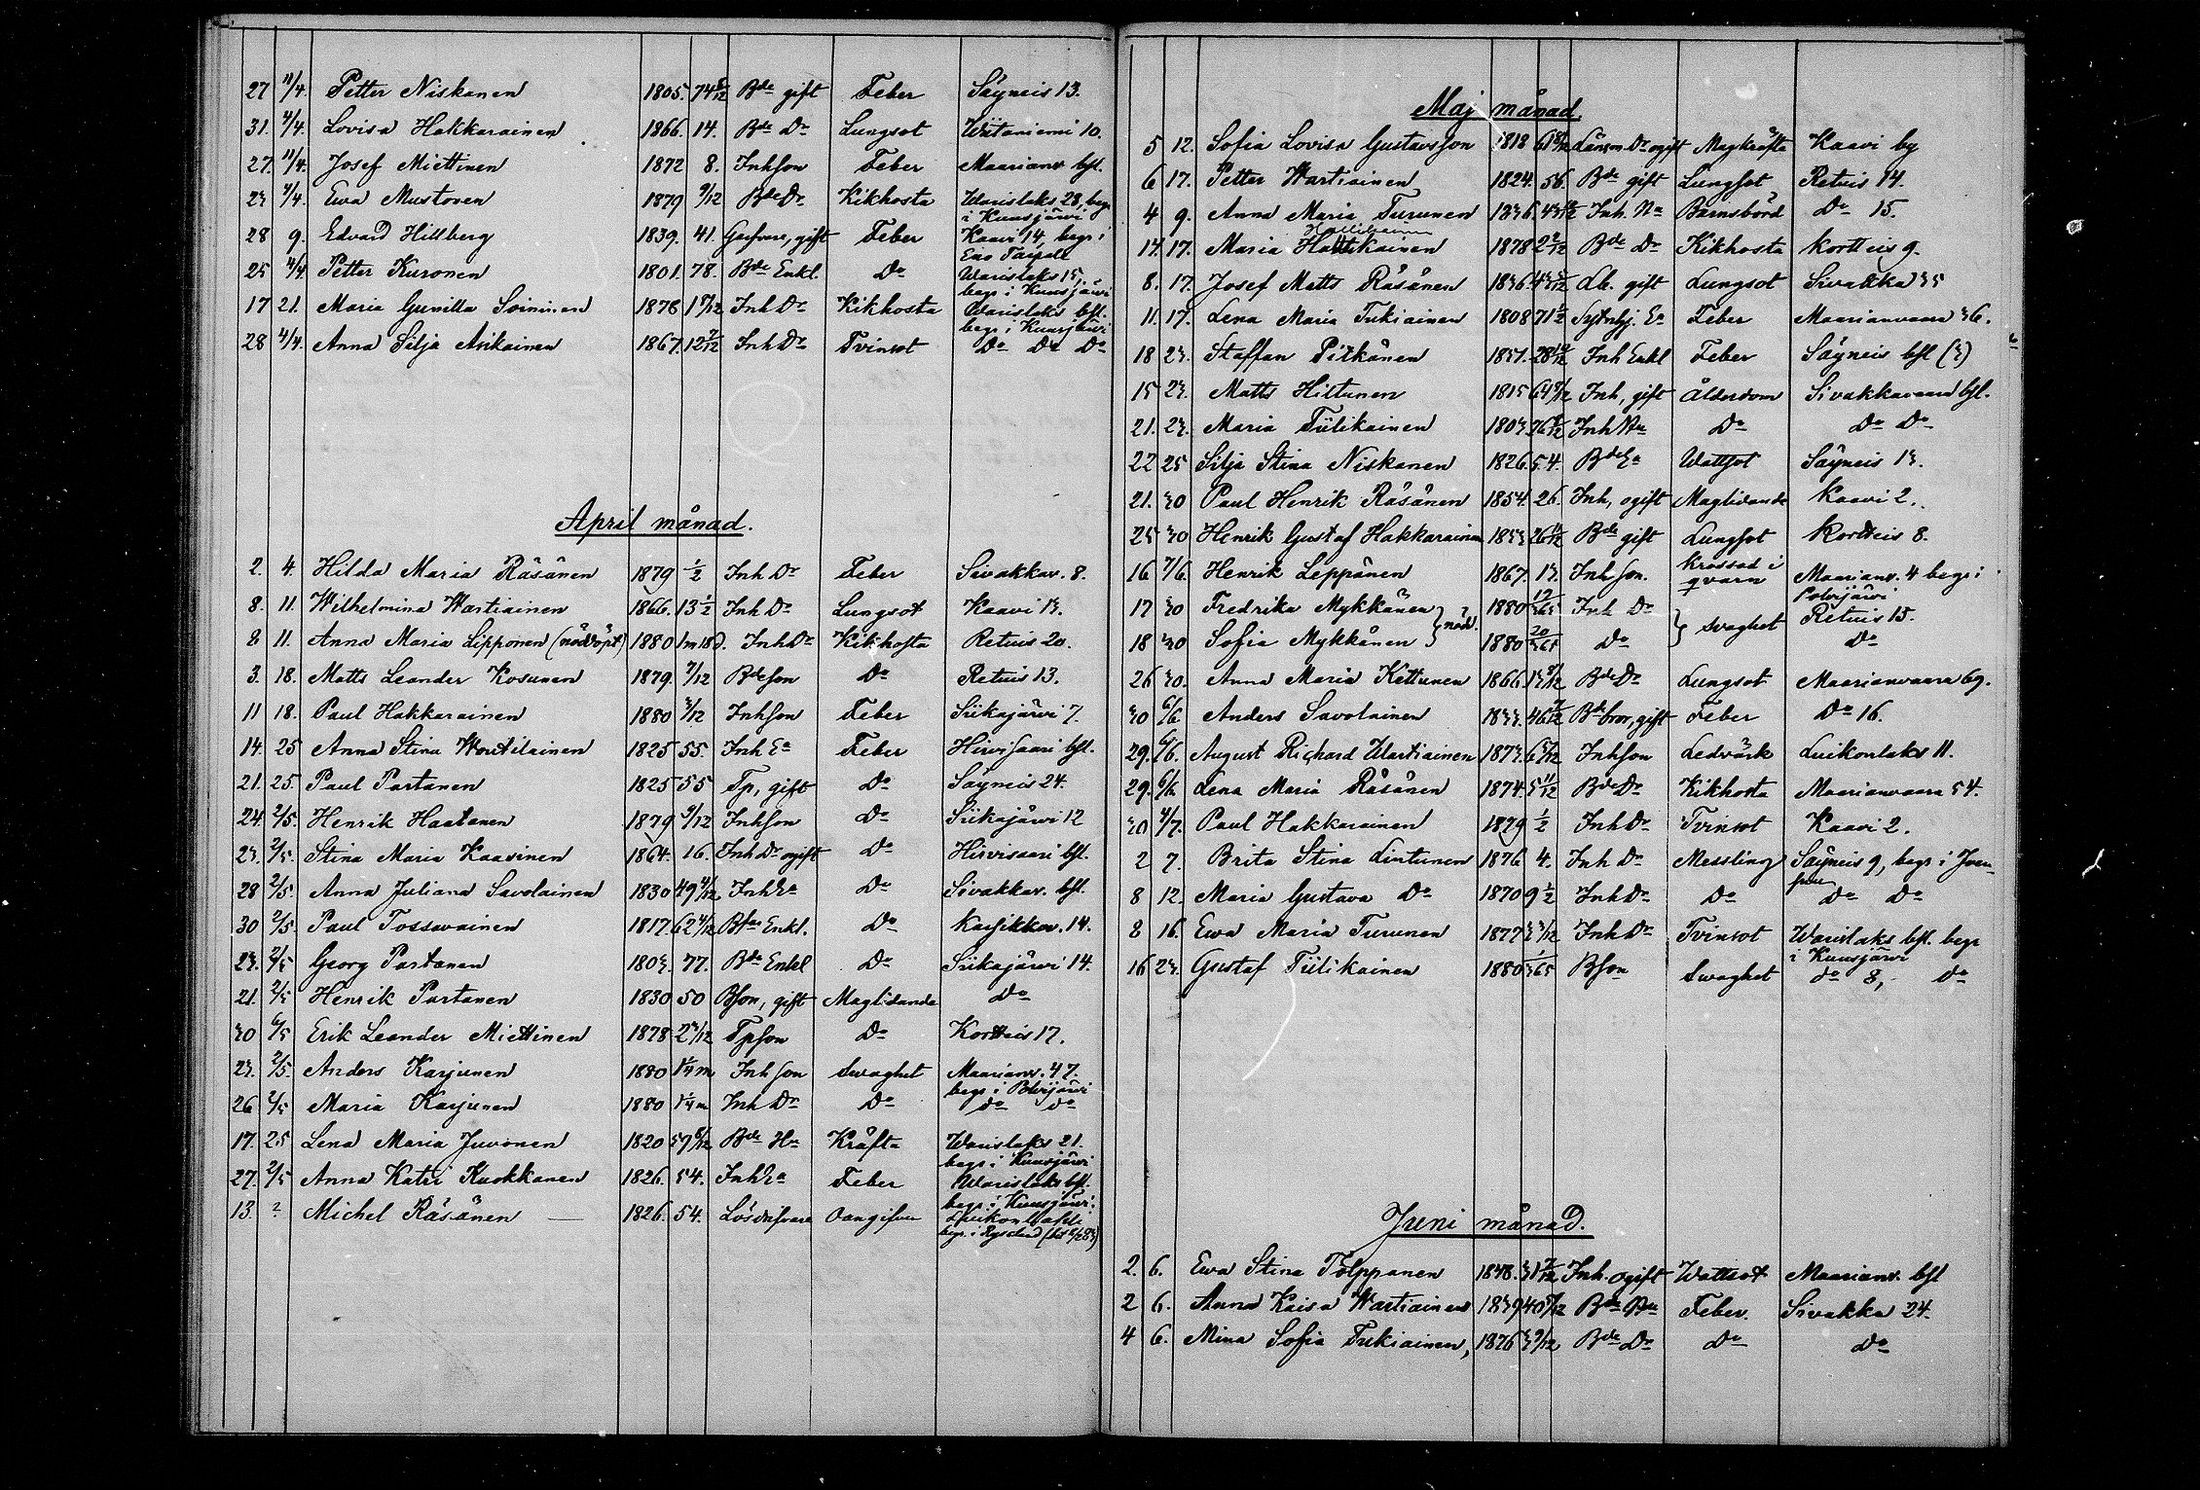 27 11/4. Petter Niskanen 1805. 74 8/12 Bde gift Feber Säyneis 13.
31. 4/4. Lovisa Hakkarainen 1866. 14. Bde Dr Lungsot Wiitaniemi 10.
27. 11/4. Josef Miettinen 1872 8. Inhson Feber Maarianv. bfl.
23 4/4. Ewa Mustonen 1879 9/12 Bde Dr Kikhosta Waristaks 28, begr. i Kuusjärvi
28 9. Edvard Hillberg 1839. 41. gift Feber Kaavi 14, begr. i Eno
25 4/4 Petter Kuronen 1801. 78. Bde Enkl. Do Waristaks 15, begr i Kuusjärvi
17 21. Maria Gunilla Soininen 1878 Inh Dr Kikhosta Waristaks bfl. begr i Kuusjärvi
28 4/4. Anna Silja Asikainen 1867. 12 7/12 Inh Dr Tvinsot Do Do Do
April månad.
2. 4. Hilda Maria Räsänen 1879 1/2 Inh Dr Feber Sivakkav. 8.
8. 11. Wilhelmina Wartiainen 1866. 13 1/2 Inh Dr Lungsot Kaavi 13.
8 11. Anna Maria Lipponen (nöddöpt) 1880 1m 18d. Inh Dr Kikhosta Retuis 20.
3. 18. Matts Leander Kosunen 1879 7/12 Bdeson Do Retuis 13.
11 18. Paul Hakkarainen 1880 3/12 Inhson Feber Siikajärvi 7.
14. 25 Anna Stina Woutilainen 1825 55. Inh Ea Feber Hirvisaari bfl.
21. 25. Paul Partanen 1825 55 Tp, gift Do Säyneis 24.
24 2/5. Henrik Haatanen 1879 9/12 Inhson Do Siikajärvi 12
23. 2/5. Stina Maria Kaasinen 1864. 16. Inh Dr ogift Do Hirvisaari bfl.
28 2/5. Anna Juliana Savolainen 1830 49 4/12 Inh Ea Do Sivakkav. bfl.
30 2/5. Paul Tossavainen 1817. 62 4/12 Enkl. Do Karsikkov. 14.
23. 2/5 Georg Partanen 1803. 77. Bde Enkl Do Siikajärvi 14.
21. 2/5 Henrik Partanen 1830 50 Bson, gift Maglidande Do
30 6/5 Erik Leander Miettinen 1878 2 3/12 Tpson Do Kortteis 17.
23. 2/5. Anders Karjunen 1880 1 1/4 m Inhson Swaghet Maarianv. 47. begr. i Polvijärvi
26 2/5 Maria Karjunen 1880 1 1/4 m Inh Dr Do do do
17. 25 Lena Maria Juvonen 1820 59 8/12 Bde Ha Kräfta Waristaks 21. begr i Kuusjärvi
27. 2/5 Anna Katri Kuokkanen 1826. 54. Inh Ea Feber Waristaks bfl. begr. i Kuusjärvi.
13. ? Michel Räsänen — 1826. 54. Lösdrifvare Oangifven Luikonlahti begr. i Ryssland
Maj månad.
5 12. Sofia Lovisa Gustavsson 1818 Länsm. Dr ogift Magkräfta Kaavi by
6 17. Petter Wartiainen 1824. 56. Bde gift Lungsot Retuis 14.
4 9. Anna Maria Turunen 1836. Inh. Na Barnsbörd Do 15.
14. 17. Maria Hattikainen 1878 2 2/12 Bde Dr Kikhosta Kortteis 9.
8. 17. Josef Matts Räsänen 1836. Lb. gift Lungsot Sivakka 35
11. 17. Lena Maria Tukiainen 1808 71 1/2 Sytnhj. Ea Feber Maarianvaara 36.
18 23. Staffan Pitkänen 1851. 28 Inh Enkl Feber Säyneis bfl (3)
15 23. Matts Hiltunen 1815 64 Inh, gift Ålderdom Sivakkavaara bfl.
21. 23. Maria Tiilikainen 1803. 76 Inh Na Do Do Do
22 25 Silja Stina Niskanen 1826. 54. Bde Ea Wattsot Säyneis 13.
21. 30 Paul Henrik Räsänen 1854. 26. Inh, ogift Maglidande Kaavi 2.
25 30 Henrik Gustaf Hakkarainen 1853 26 11/12 Bde gift Lungsot Kortteis 8.
16 7/6. Henrik Leppänen 1867. 13. Inhson. Krossad i qvarn Maarianv. 4 begr. i Polvijärvi
17 30 Fredrika Mykkänen } nöd. 1880 17/365 Inh Dr } swaghet Retuis 15.
18 30 Sofia Mykkänen 1880 20/365 Do Do
26 30. Anna Maria Kettunen 1866. 13 8/12 Bde Dr Lungsot Maarianvaara 69.
30 6/6 Anders Savolainen 1833. 46 7/12 Bdebror, gift Feber Do 16.
29. 6/6. August Richard Wartiainen 1873. 6 Inhson Ledvärk Luikonlaks 11.
29. 6/6 Lena Maria Räsänen 1874. 5 11/12 Bde Dr Kikhosta Maarianvaara 54.
30 4/7. Paul Hakkarainen 1879 1/2 Inh Dr Tvinsot Kaavi 2.
2 7. Brita Stina Lintunen 1876 4. Inh Dr Messling Säyneis 9, begr. i Joensuu
8 12. Maria Gustava Do 1870 9 1/2 Inh Dr Do do do
8 16. Ewa Maria Turunen 1877 Inh Dr Tvinsot Waristaks bfl. begr i Kuusjärvi
16 23. Gustaf Tiilikainen 1880 1/365 Bson Swaghet do 8, do
Juni månad.
2. 6. Ewa Stina Tolppanen 1848. 31 Inh. ogift Wattsot Maarianv. bfl
2 6. Anna Kaisa Wartiainen 1839 40 Bde Feber. Sivakka 24.
4 6. Mina Sofia Tukiainen, 1876 3 9/12 Bde Dr Do Do